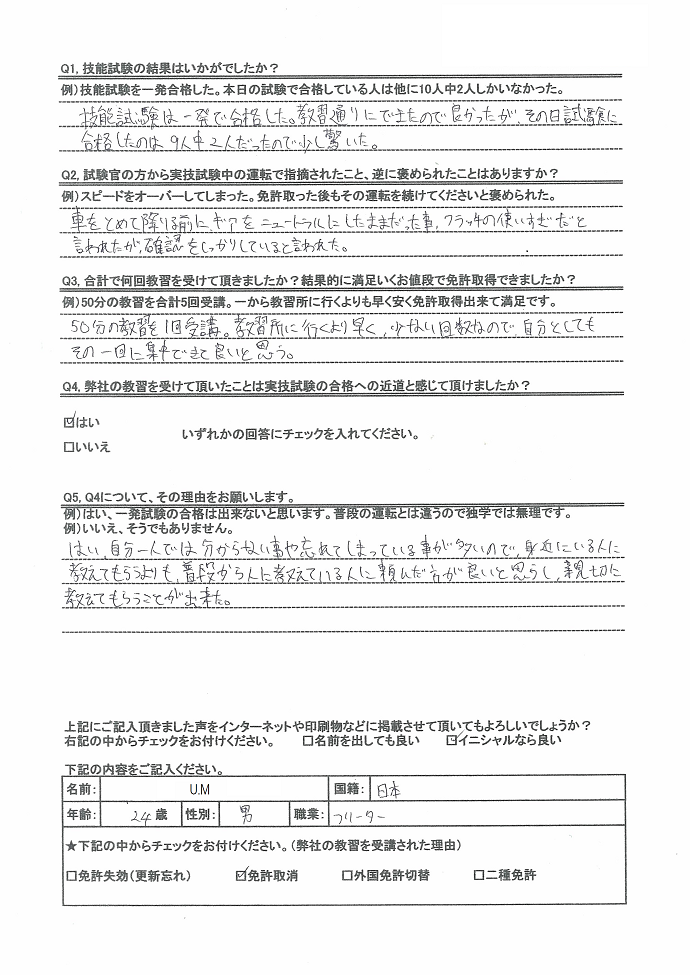 Q1, 技能試験の結果はいかがでしたか？
例）技能試験を一発合格した。本日の試験で合格している人は他に10人中2人しかいなかった。
技能試験は一発で合格した。教習通りにできたので良かったが、その日試験に
合格したのは9人中2人だったので少し驚いた。
Q2, 試験官の方から実技試験中の運転で指摘されたこと、逆に褒められたことはありますか？
例）スピードをオーバーしてしまった。免許取った後もその運転を続けてくださいと褒められた。
車をとめて降りる前に、ギアをニュートラルにしたままだった事，クラッチの使いすぎだと
言われたが，確認をしっかりしていると言われた。
Q3, 合計で何回教習を受けて頂きましたか？結果的に満足いくお値段で免許取得できましたか？
例）50分の教習を合計5回受講。一から教習所に行くよりも早く安く免許取得出来て満足です。
50分の教習を1回受講。教習所に行くより早く，少ない回数なので，自分としても
その一回に集中できて良いと思う。
Q4, 弊社の教習を受けて頂いたことは実技試験の合格への近道と感じて頂けましたか？
☑はい
いずれかの回答にチェックを入れてください。
□いいえ
Q5, Q4について、その理由をお願いします。
例）はい、一発試験の合格は出来ないと思います。普段の運転とは違うので独学では無理です。
例）いいえ、そうでもありません。
はい，自分一人では分からない事や忘れてしまっている事が多いので，身近にいる人に
教えてもらうよりも，普段から人に教えている人に頼んだ方が良いと思うし，親切に
教えてもらうことが出来た。
上記にご記入頂きました声をインターネットや印刷物などに掲載させて頂いてもよろしいでしょうか？
右記の中からチェックをお付けください。 □名前を出しても良い ☑イニシャルなら良い
下記の内容をご記入ください。
名前: U.M 国籍: 日本
年齢: 24歳 性別: 男 職業: フリーター
★下記の中からチェックをお付けください。（弊社の教習を受講された理由）
□免許失効（更新忘れ） ☑免許取消 □外国免許切替 □二種免許